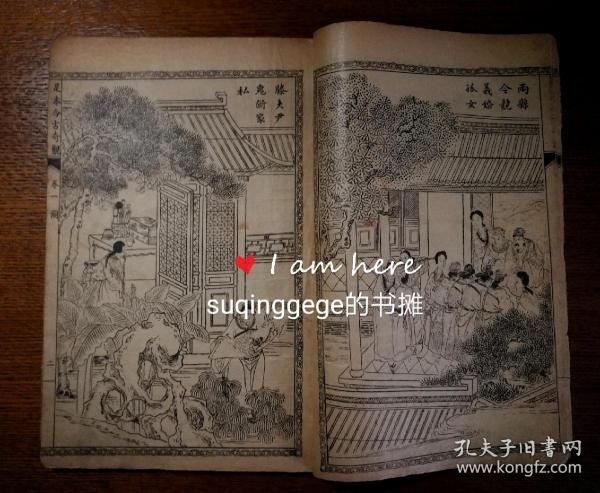 兩縣
令競
義婚
孤女
滕大尹
鬼斷家
私
足本今古奇觀
卷一
I am here
suqinggege的书摊
孔夫子旧书网
www.kongfz.com